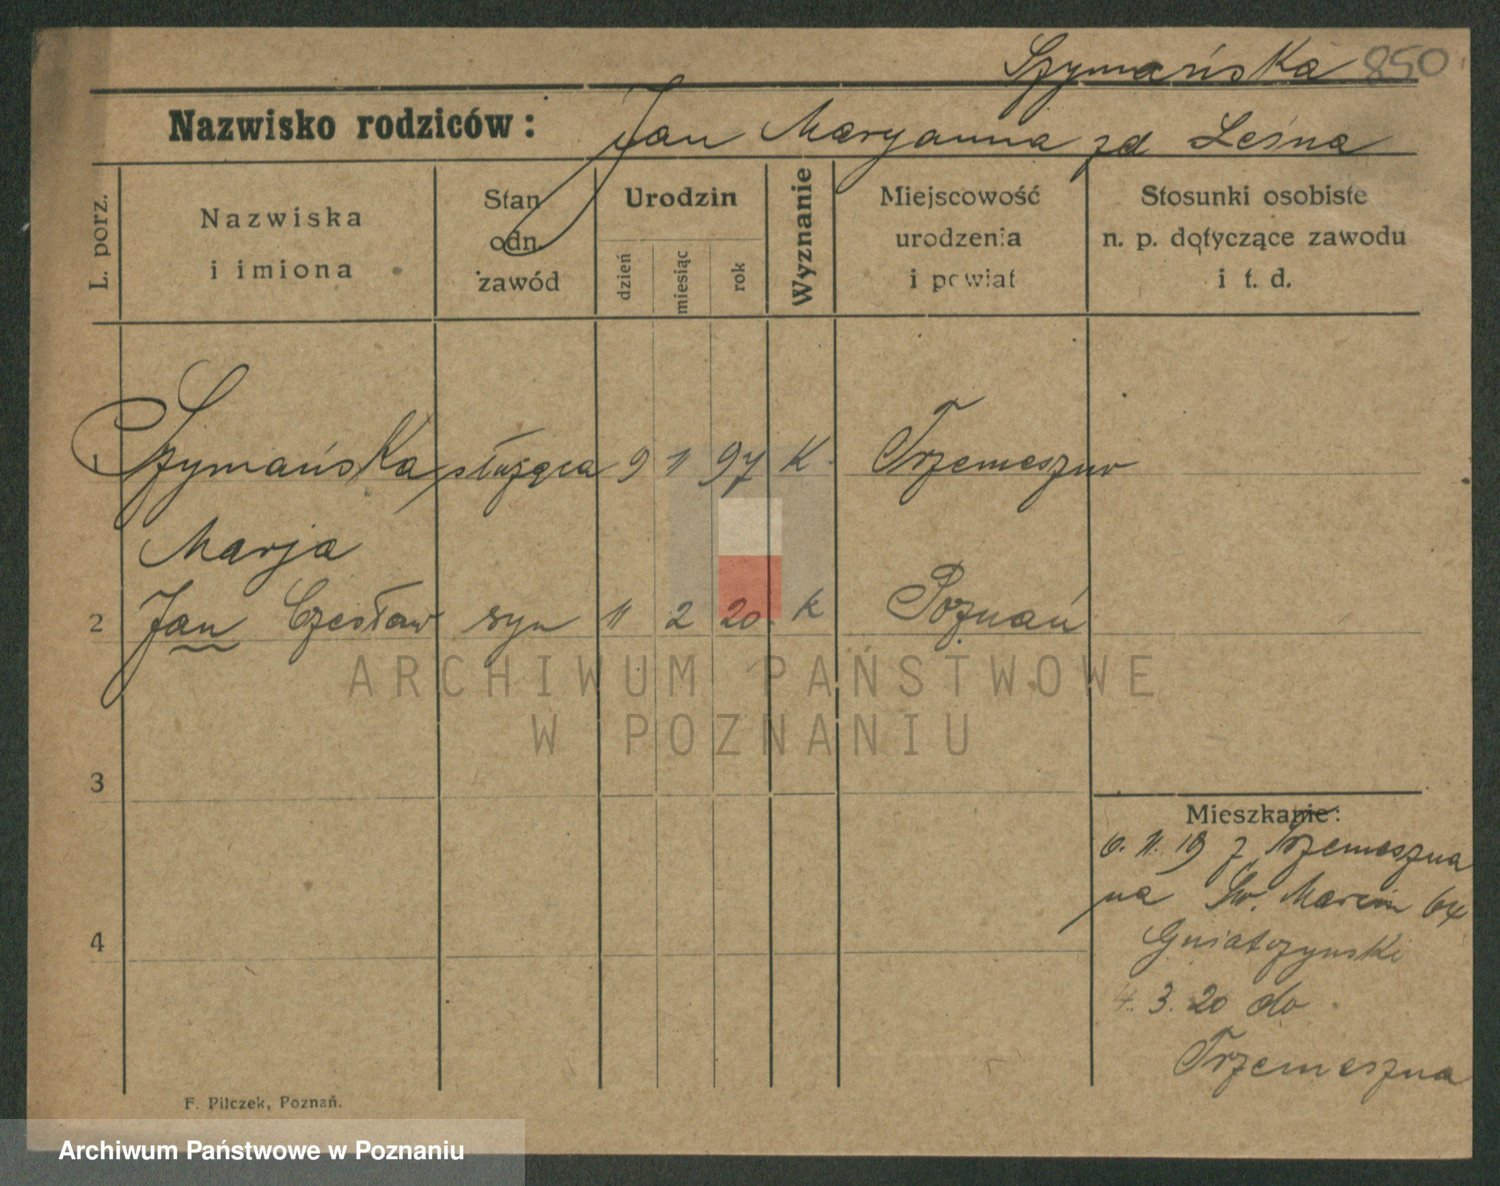 Szymańska 850
Nazwisko rodziców: Jan Maryanna zd Leśna
L. porz.
Nazwiska i imiona
Stan odn. zawód
Urodzin
dzień miesiąc rok
Wyznanie
Miejscowość urodzenia i powiat
Stosunki osobiste n. p. dotyczące zawodu i t. d.
1 Szymańska służąca 9 11 97 K. Trzemeszno
Marja
2 Jan Czesław syn 11 2 20 k Poznań
ARCHIWUM PAŃSTWOWE
W POZNANIU
3
Mieszkanie:
6. 11. 19 z Trzemeszna
na Św. Marcin 64
Gniatczynski
4
4. 3. 20 do
Trzemeszna
F. Pilczek, Poznań.
Archiwum Państwowe w Poznaniu